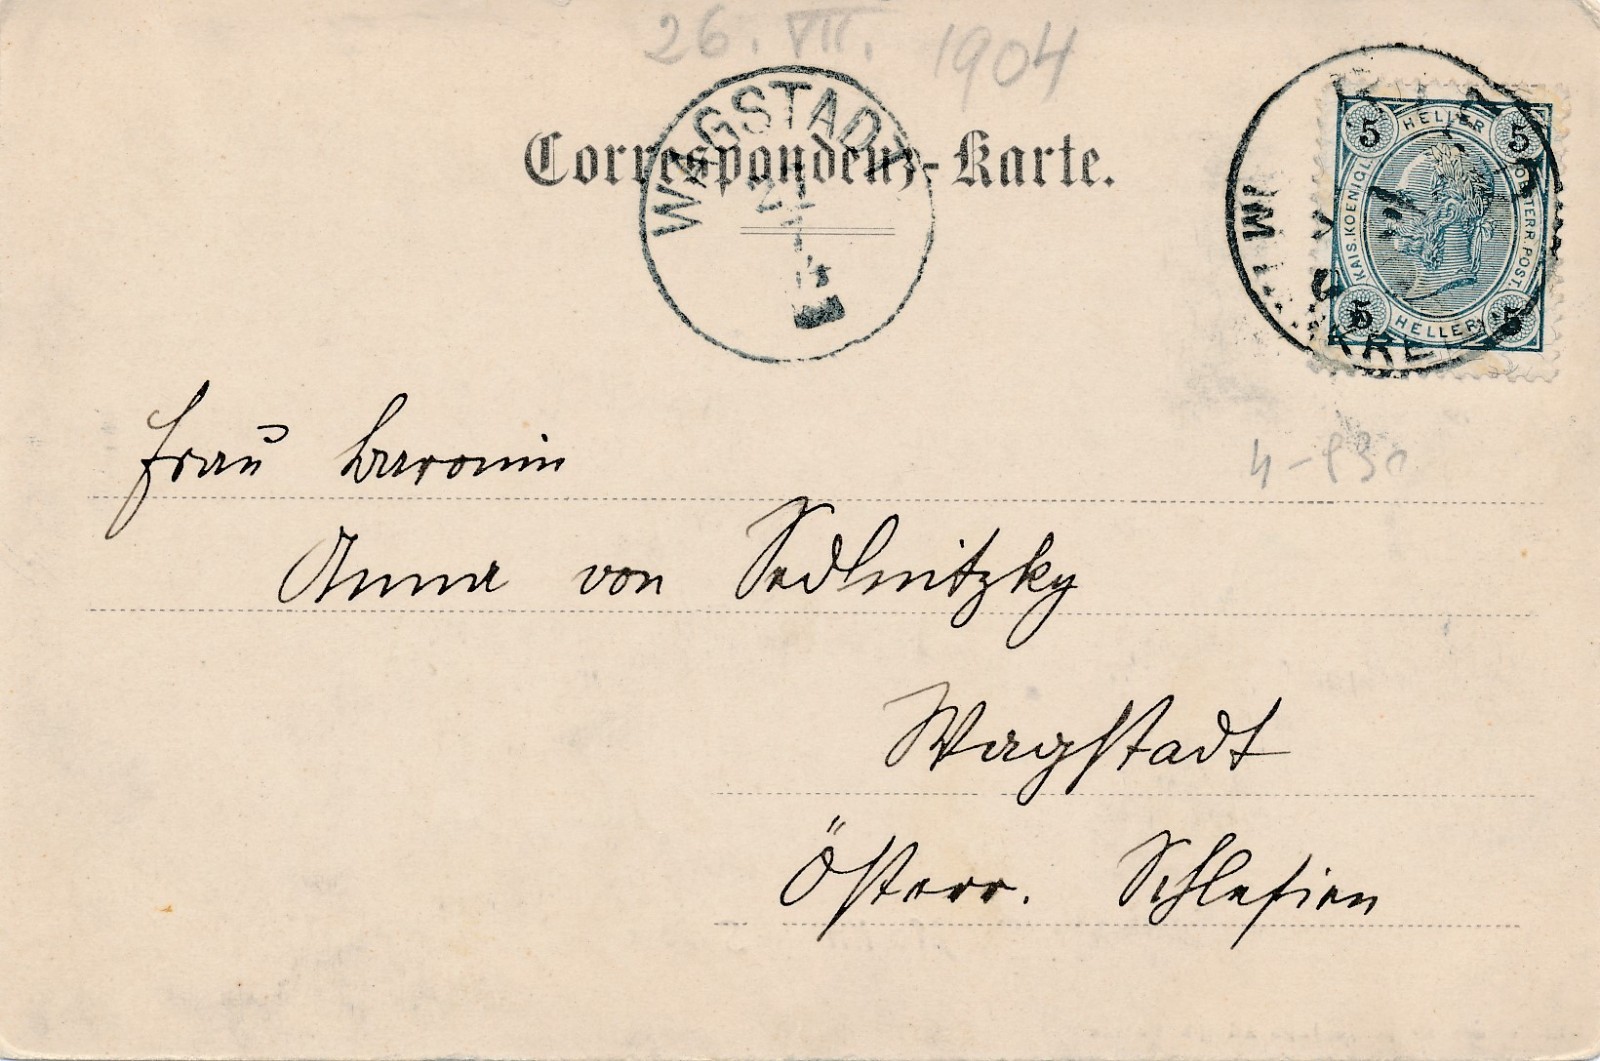 26. VII. 1904
WAGSTADT
Correspondenz-Karte.
5 HELLER 5
KAIS. KOENIGL. OESTERR. POST.
5 HELLER 5
Frau Baronin
Anna von Sedlnitzky
Wagstadt
Österr. Schlesien